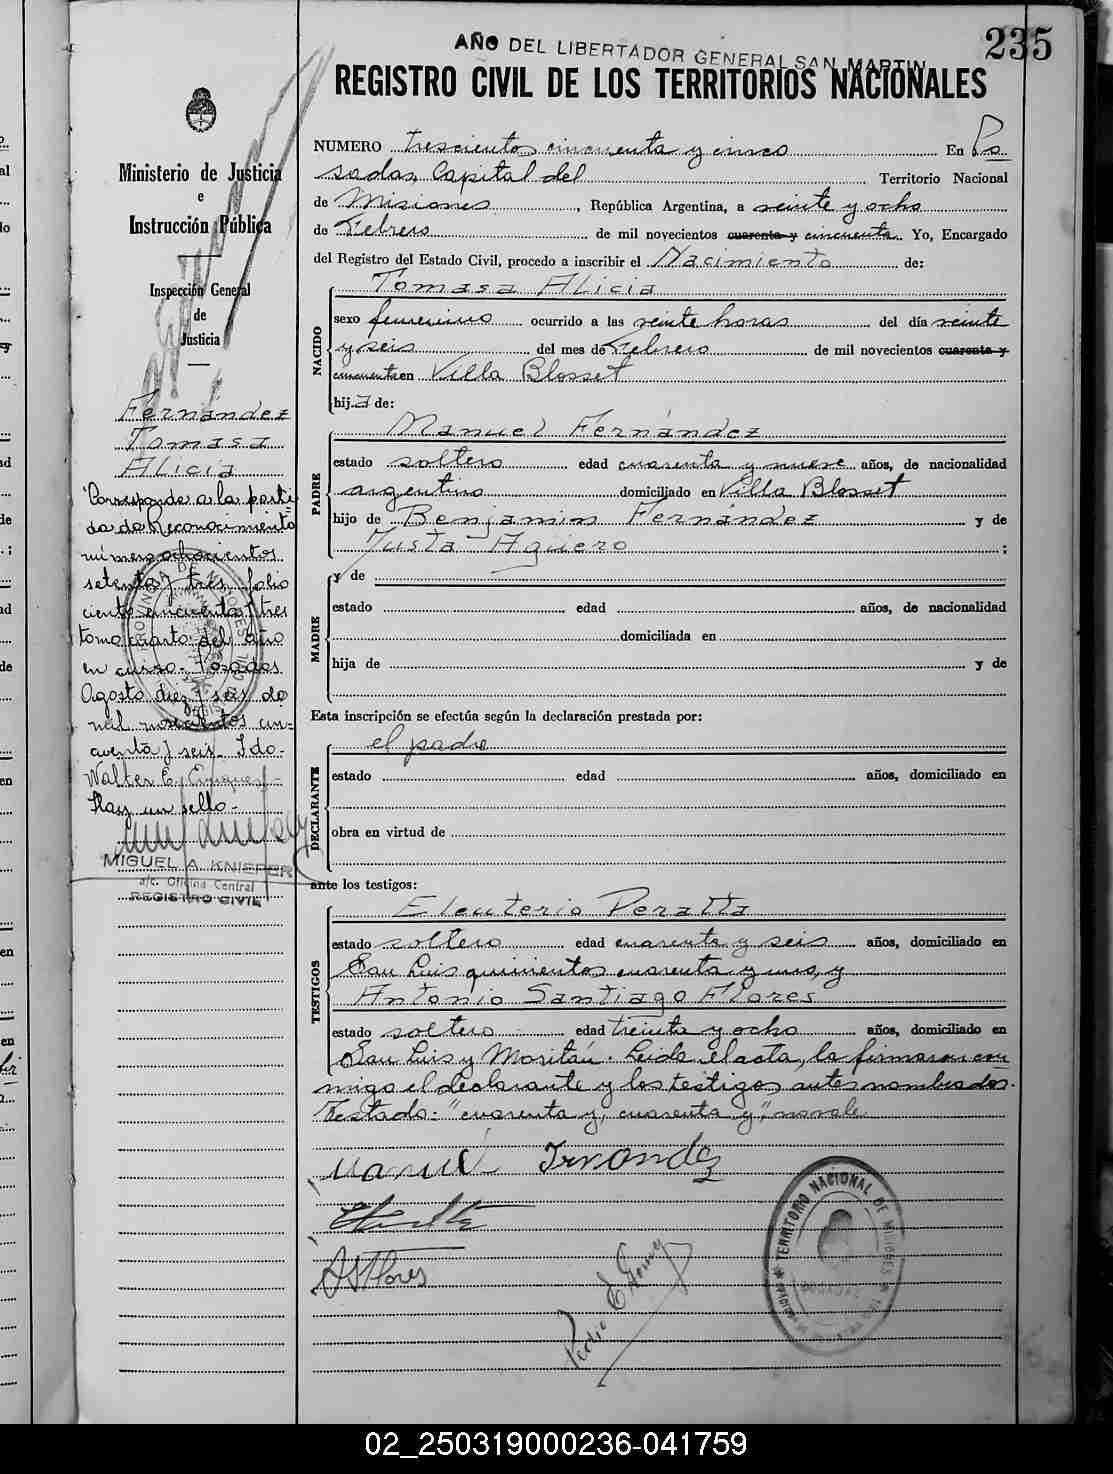 235
AÑO DEL LIBERTADOR GENERAL SAN MARTIN
REGISTRO CIVIL DE LOS TERRITORIOS NACIONALES
Ministerio de Justicia
e
Instrucción Pública
Inspección General
de
Justicia
Fernández
Tomasa
Alicia
"Corresponde a la parti
da de Reconocimiento"
número ochocientos
setenta y tres folio
ciento cincuenta y tres
tomo cuarto del año
en curso.- Posadas
Agosto diez y seis de
mil novecientos cin-
cuenta y seis. Fdo.
Walter E. Enriquez-
Hay un sello.-
MIGUEL A. KNIEPER
a/c. Oficina Central
REGISTRO CIVIL
NUMERO trescientos cincuenta y cinco En Po
sadas, Capital del Territorio Nacional
de Misiones, República Argentina, a veinte y ocho
de Febrero de mil novecientos cuarenta y cincuenta. Yo, Encargado
del Registro del Estado Civil, procedo a inscribir el Nacimiento de:
NACIDO
Tomasa Alicia
sexo femenino ocurrido a las veinte horas del día veinte
y seis del mes de Febrero de mil novecientos cuarenta y
cincuenta en Villa Blosset
hija de:
PADRE
Manuel Fernández
estado soltero edad cuarenta y nueve años, de nacionalidad
argentino domiciliado en Villa Blosset
hijo de Benjamin Fernández y de
Justa Agüero ;
MADRE
y de
estado edad años, de nacionalidad
domiciliada en
hija de y de
Esta inscripción se efectúa según la declaración prestada por:
DECLARANTE
el padre
estado edad años, domiciliado en
obra en virtud de
ante los testigos:
TESTIGOS
Eleuterio Peralta
estado soltero edad cuarenta y seis años, domiciliado en
San Luis quinientos cuarenta y uno, y
Antonio Santiago Flores
estado soltero edad treinta y ocho años, domiciliado en
San Luis y Moritán. Leida el acta, la firmaron con
migo el declarante y los testigos antes nombrados.
Testado: "cuarenta y, cuarenta y", no vale
Manuel Fernandez
A S Flores
Pedro E Gomez
TERRITORIO NACIONAL DE MISIONES
POSADAS
PROVINCIA DE MISIONES
REGISTRO CIVIL
02_250319000236-041759